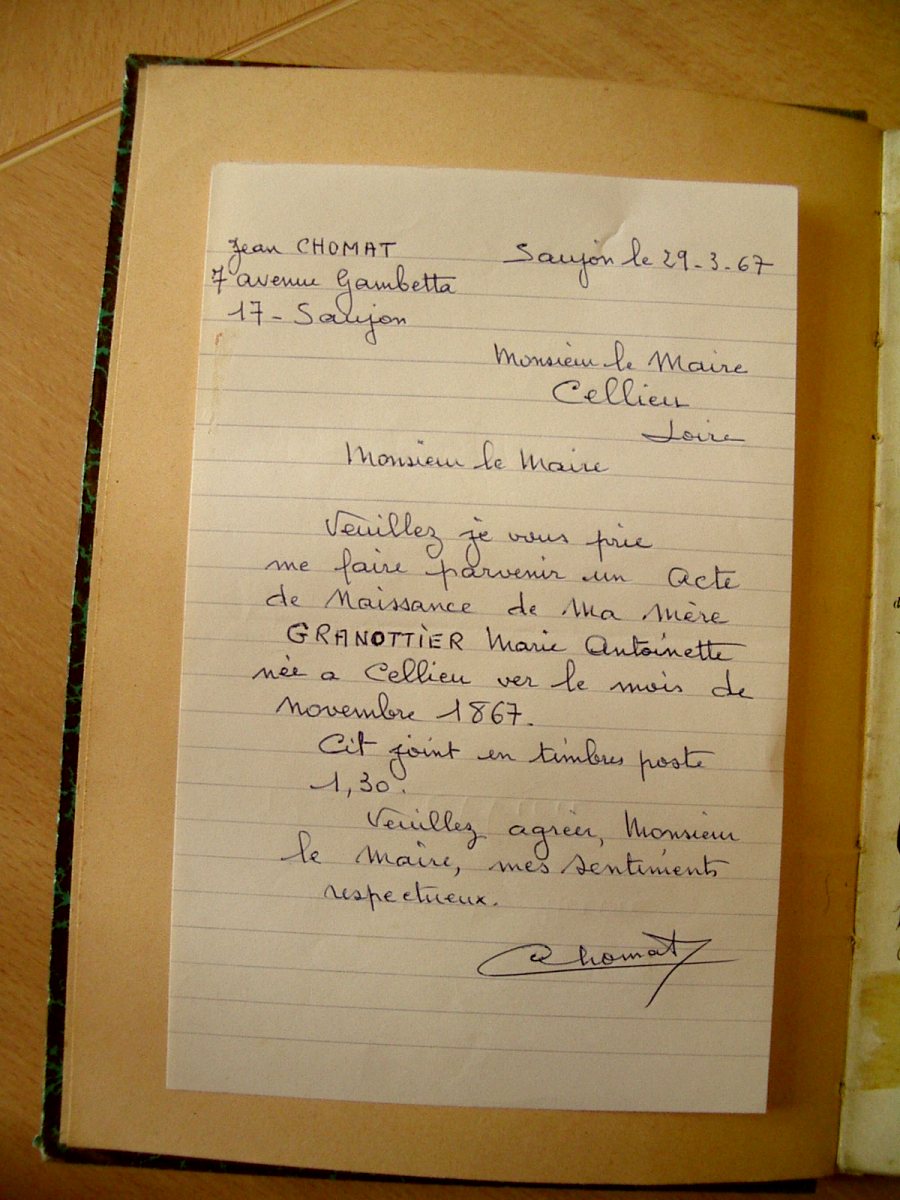 Jean CHOMAT
7 avenue Gambetta
17 - Saujon
Saujon le 29-3-67
Monsieur le Maire
Cellieu
Loire
Monsieur le Maire
Veuillez je vous prie
me faire parvenir un acte
de Naissance de Ma Mère
GRANOTTIER Marie Antoinette
née a Cellieu ver le mois de
novembre 1867.
Cit joint en timbres poste
1,30.
Veuillez agréer, Monsieur
le Maire, mes sentiments
respectueux.
Chomat